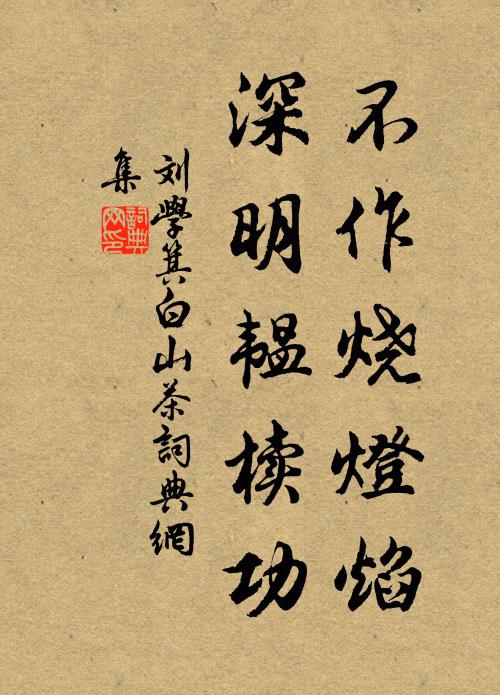 不作烧燈焰
深明韫椟功
刘學箕白山茶詞典網
集
詞典
网印